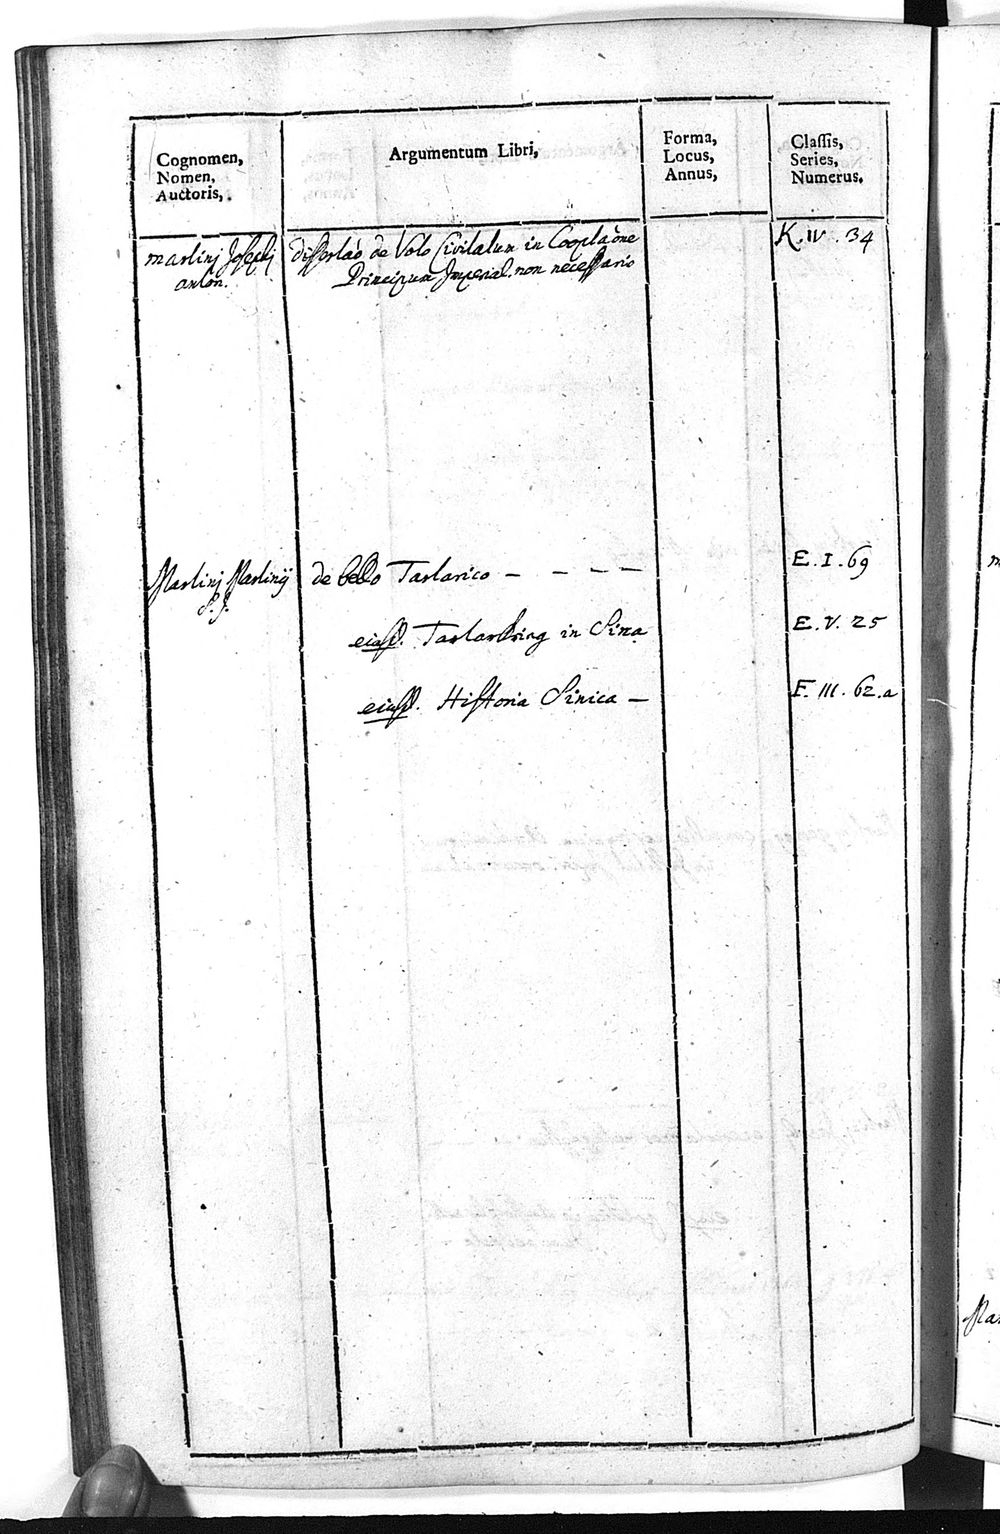 Cognomen,
Nomen,
Auctoris,
Argumentum Libri,
Forma,
Locus,
Annus,
Classis,
Series,
Numerus,
martinj Josephj
anton.
dissertaõ de Voto Civitatum in Cooptaõne
Principum Imperial. non necessario
K. IV. 34
Martinj Martinij
S. J.
de bello Tartarico - - - -
E. I. 69
eiusd. Tartar in Sina
E. V. 25
eiusd. Historia Sinica -
F. III. 62. a